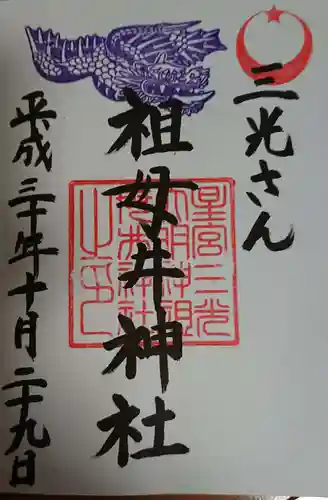 三光さん
祖母井神社
平成三十年十月二十九日